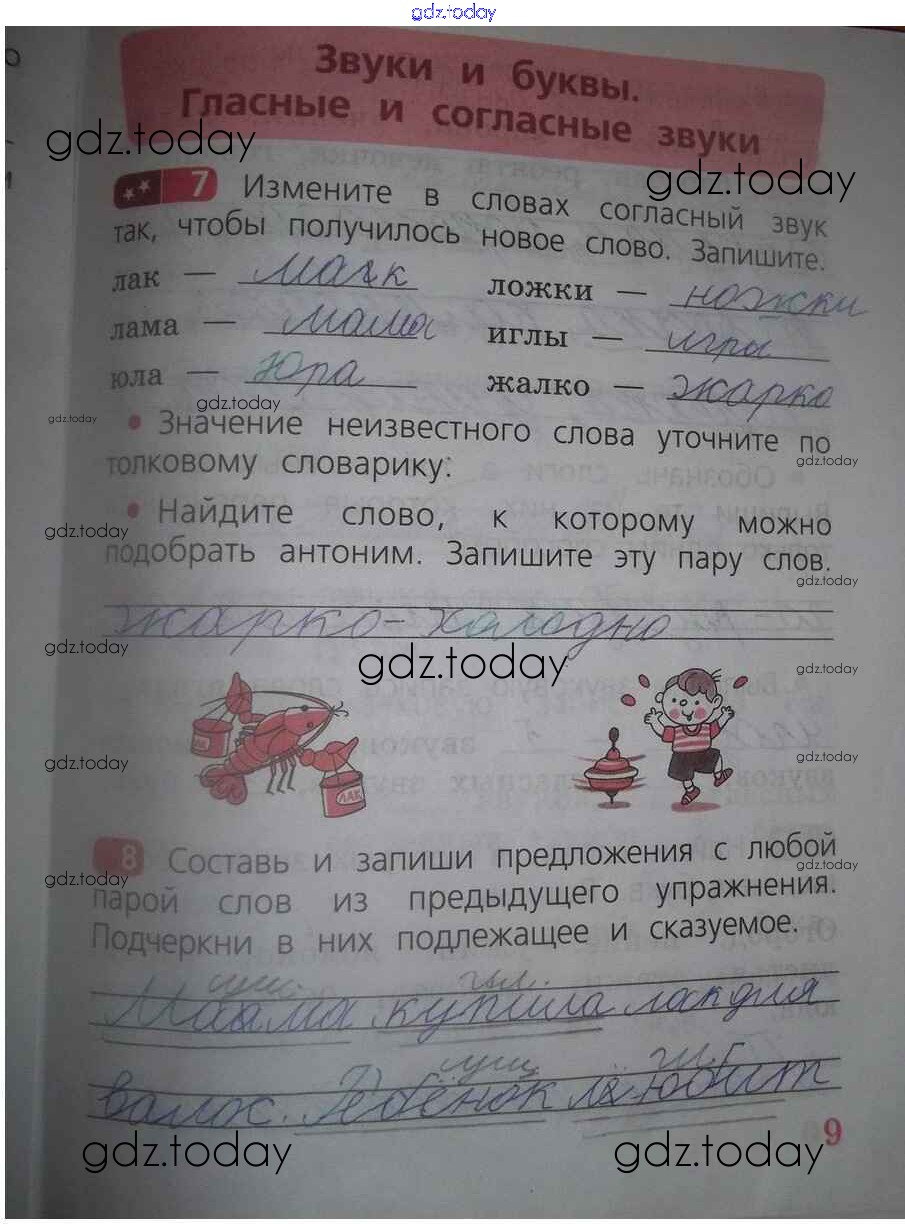 gdz.today
Звуки и буквы.
Гласные и согласные звуки
gdz.today
gdz.today
7 Измените в словах согласный звук
так, чтобы получилось новое слово. Запишите.
лак — мак ложки — ножки
лама — мама иглы — игры
юла — Юра жалко — жарко
gdz.today
gdz.today
• Значение неизвестного слова уточните по
толковому словарику:
gdz.today
• Найдите слово, к которому можно
gdz.today
подобрать антоним. Запишите эту пару слов.
gdz.today
жарко - холодно
gdz.today
gdz.today
gdz.today
ЛАК
ЛАК
gdz.today
gdz.today
8 Составь и запиши предложения с любой
gdz.today
gdz.today
парой слов из предыдущего упражнения.
Подчеркни в них подлежащее и сказуемое.
сущ. гл.
Мама купила лак для
сущ гл.
валос. Ребёнок любит
9
gdz.today
gdz.today